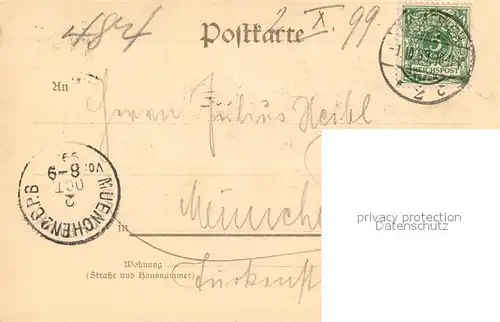 484 2 X. 99.
Postkarte
5
REICHSPOST
An
Herrn Julius
privacy protection
www.ansichtskarten-center.de
MUENCHEN 2. C.P.B
2
OCT
8-9
VO.
99.
in München
Wohnung
(Straße und Hausnummer)
Türkenst